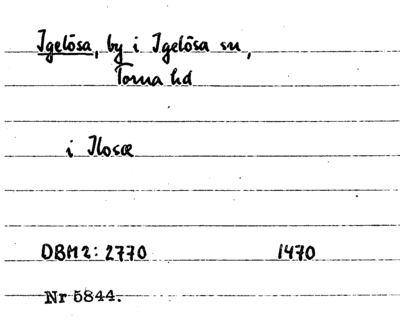 Igelösa, by i Igelösa sn,
Torna hd
i Ilosæ
DBM 2: 2770 1470
Nr 5844.